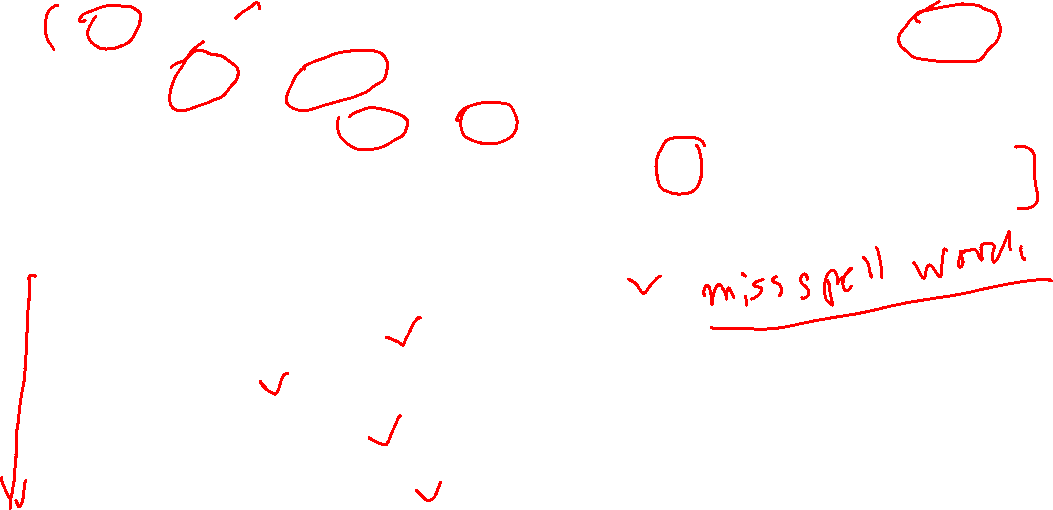 misspell word.